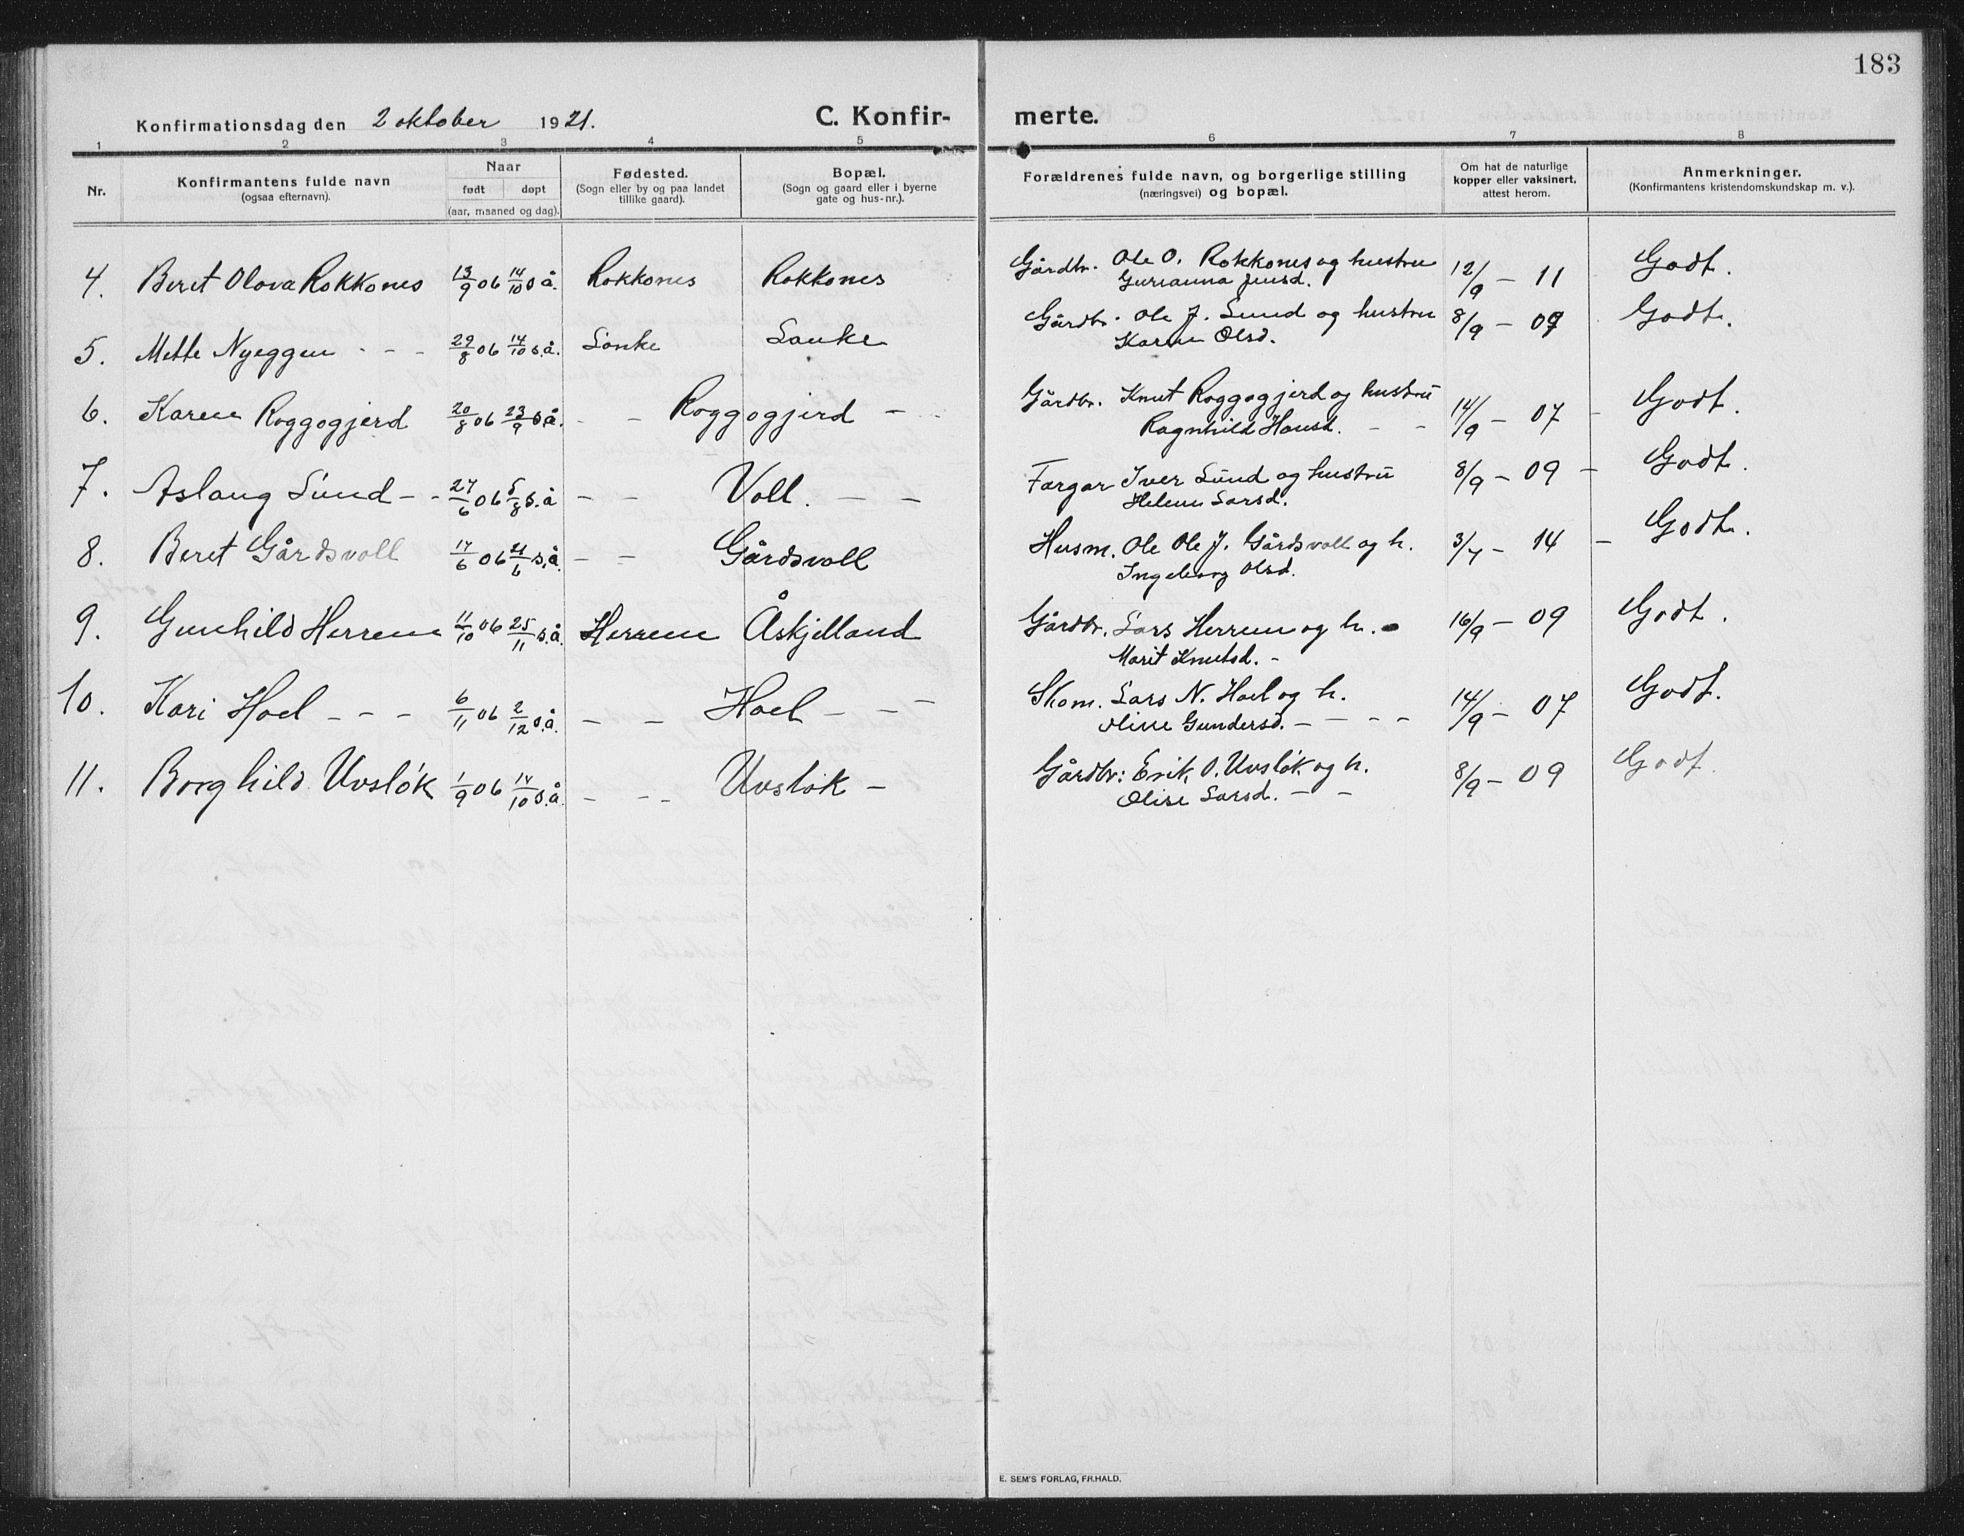 183
Konfirmationsdag den 2 oktober 1921.
C. Konfirmerte.
1 2 3 4 5 6 7 8
Nr.
Konfirmantens fulde navn
(ogsaa efternavn).
Naar
født døpt
(aar, maaned og dag).
Fødested.
(Sogn eller by og paa landet
tillike gaard).
Bopæl.
(Sogn og gaard eller i byerne
gate og hus-nr.).
Forældrenes fulde navn, og borgerlige stilling
(næringsvei) og bopæl.
Om hat de naturlige
kopper eller vaksinert,
attest herom.
Anmerkninger.
(Konfirmantens kristendomskundskap m. v.).
4. Beret Olova Rokkones 13/9 06 14/10 s.å. Rokkones Rokkones Gårdbr. Ole O. Rokkones og hustru 12/9 – 11 Godt.
Gurianna Jensd.
5. Mette Nyeggen - - - 29/8 06 14/10 s.å. Lönke Lanke Gårdbr. Ole J. Lund og hustru 8/9 – 09 Godt.
Karen Olsd.
6. Karen Roggogjerd 20/8 06 23/9 s.å. - - Roggogjerd - Gårdbr. Knut Roggogjerd og hustru 14/9 – 07 - Godt.
Ragnhild Hansd. - -
7. Aslaug Lund - - 27/6 06 5/8 s.å - - Voll. - - Iver Lund og hustru 8/9 – 09 - Godt.
Helene Larsd.
8. Beret Gårdsvoll 17/6 06 21/6 s.å. - - Gårdsvoll Husm. Ole Ole J. Gårdsvoll og h. 3/7 – 14 - Godt.
Ingeborg Olsd.
9. Gunhild Herrem 11/10 06 25/11 s.å. Herrem Åskjelland Gårdbr. Lars Herrem og h. 16/9 – 09 Godt.
Marit Knutsd. -
10. Kari Hoel - - - 6/11 06 2/12 s.å. - - Hoel - - - Skom. Lars N. Hoel og h. 14/9 – 07 Godt.
Oline Gundersd. - - - -
11. Borghild Uvsløk 1/9 06 14/10 s.å. - - - Uvsløk - Gårdbr: Erik O. Uvsløk og h. 8/9 – 09 Godt.
Olise Larsd. - -
E. SEM'S FORLAG, FR.HALD.